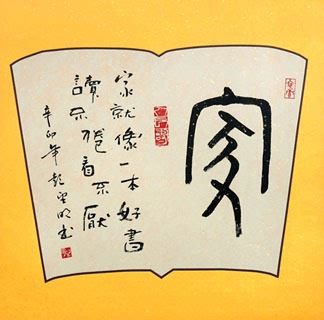 家
家就像一本好書
讀不倦看不厭
辛卯年